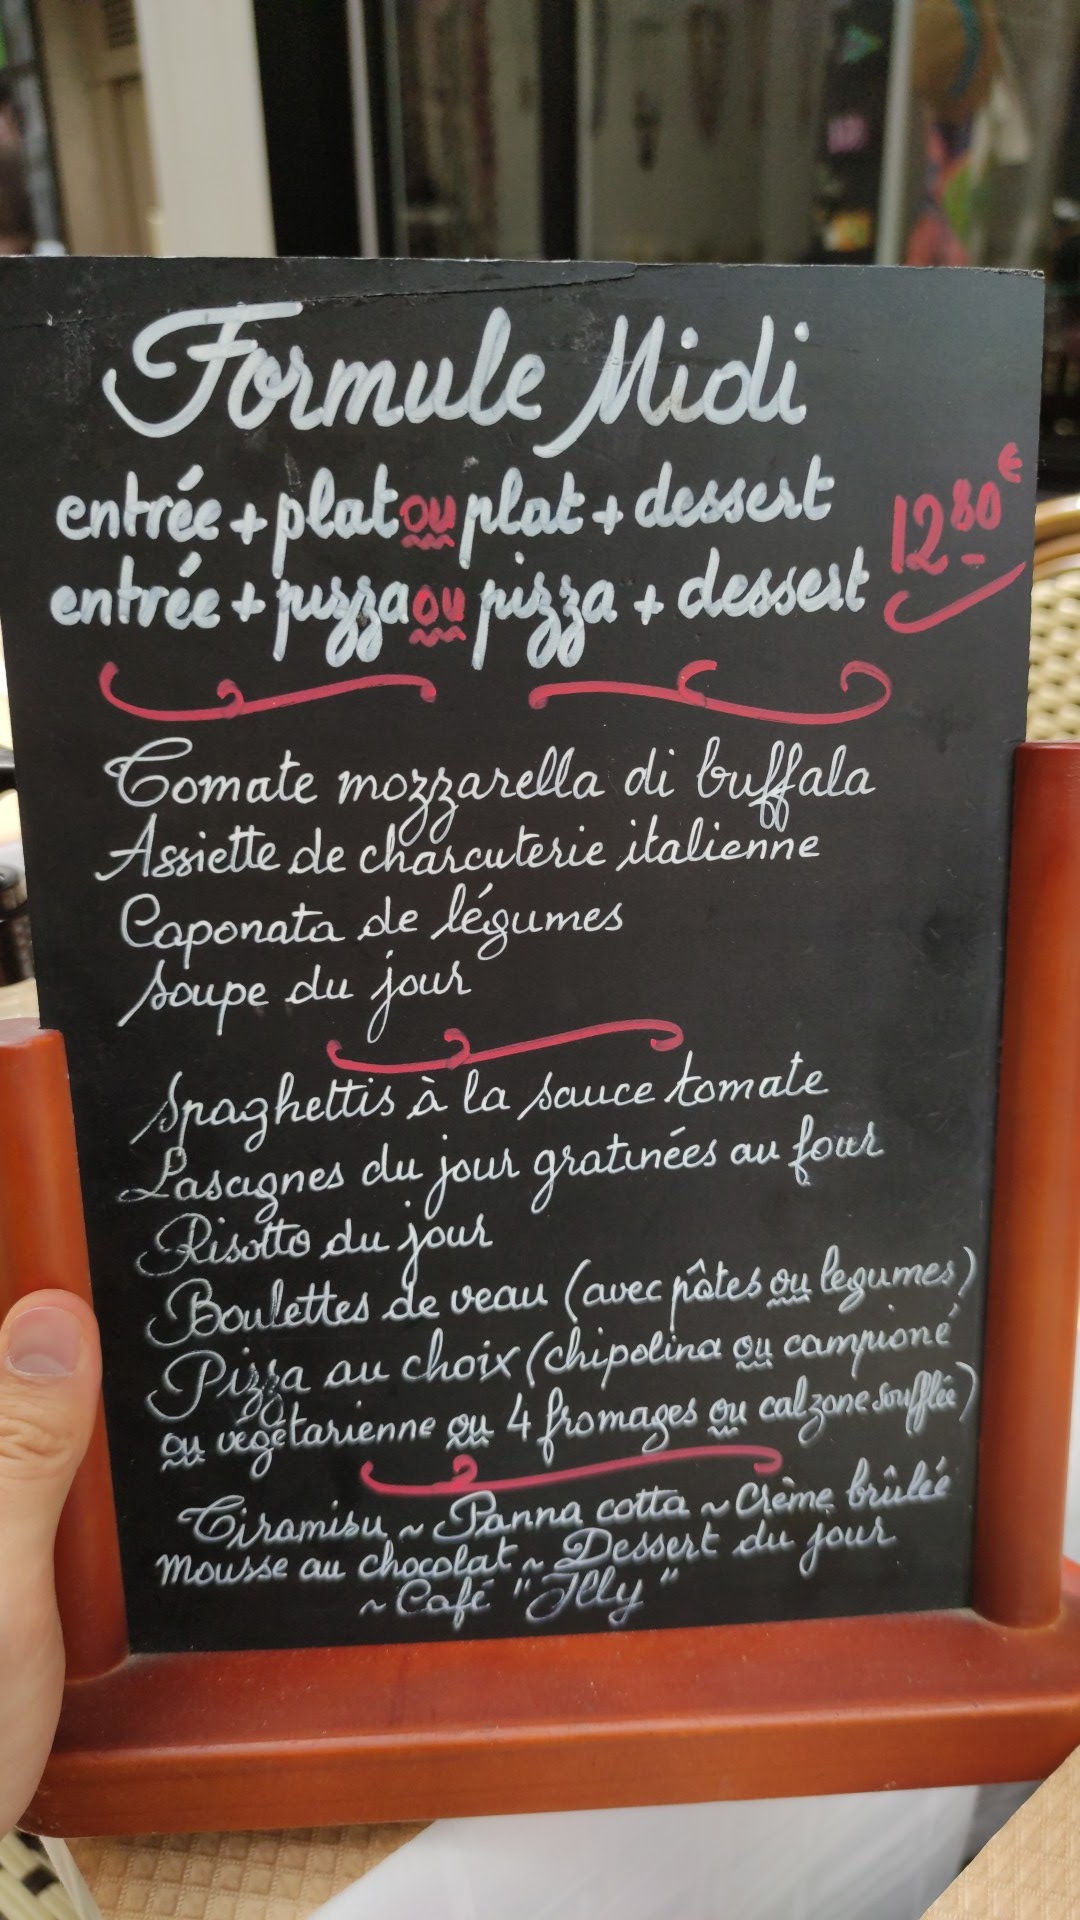 Formule Midi
entrée + plat ou plat + dessert
12 80 €
entrée + pizza ou pizza + dessert
Tomate mozzarella di buffala
Assiette de charcuterie italienne
Caponata de légumes
Soupe du jour
Spaghettis à la sauce tomate
Lasagnes du jour gratinées au four
Risotto du jour
Boulettes de veau (avec pâtes ou legumes)
Pizza au choix (chipolina ou campioné
ou végétarienne ou 4 fromages ou calzone soufflée)
Tiramisu ~ Panna cotta ~ Crème brûlée
Mousse au chocolat ~ Dessert du jour
~ Café "Illy"